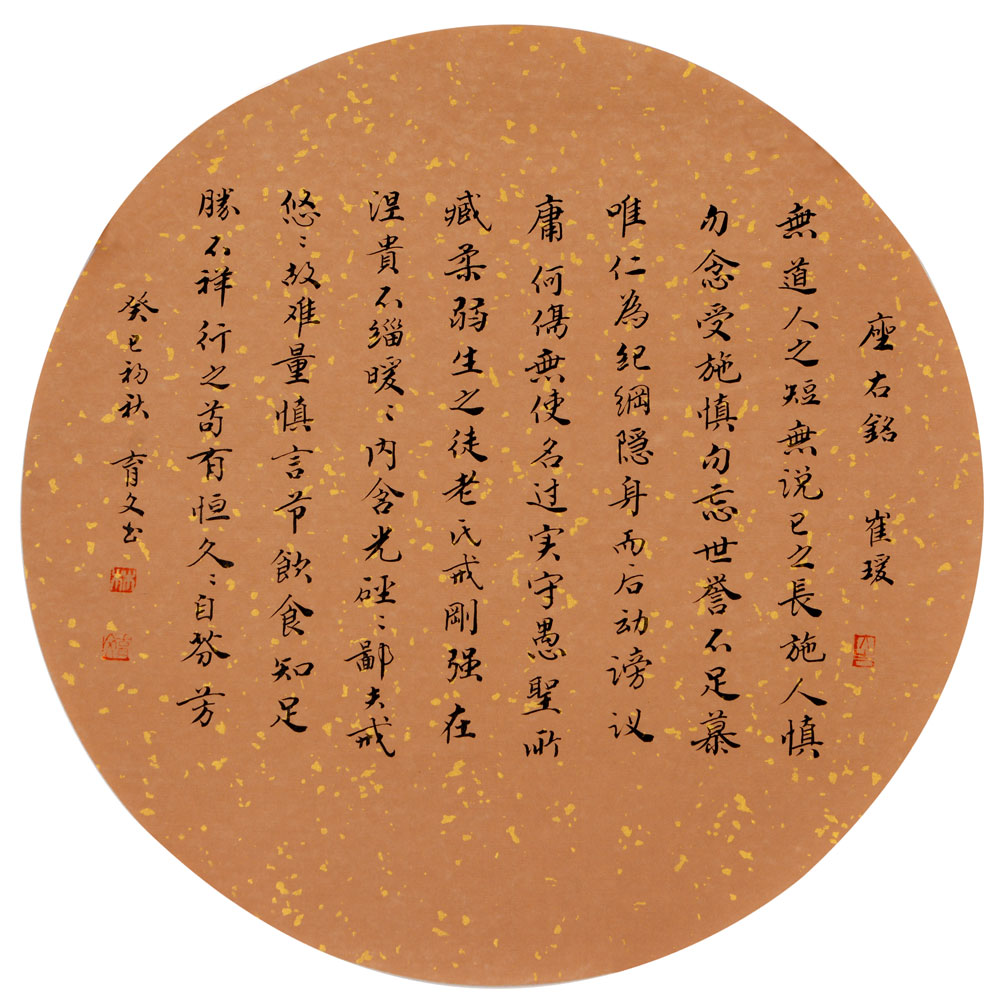 座右銘　崔瑗
無道人之短無说已之長施人慎
勿念受施慎勿忘世誉不足慕
唯仁為紀綱隐身而后动谤议
庸何傷無使名过实守愚聖所
臧柔弱生之徒老氏戒剛强在
涅貴不缁暧〻内含光硁〻鄙夫戒
悠〻故难量慎言节飲食知足
勝不祥行之苟有恒久〻自芬芳
癸巳初秋　育文书
林